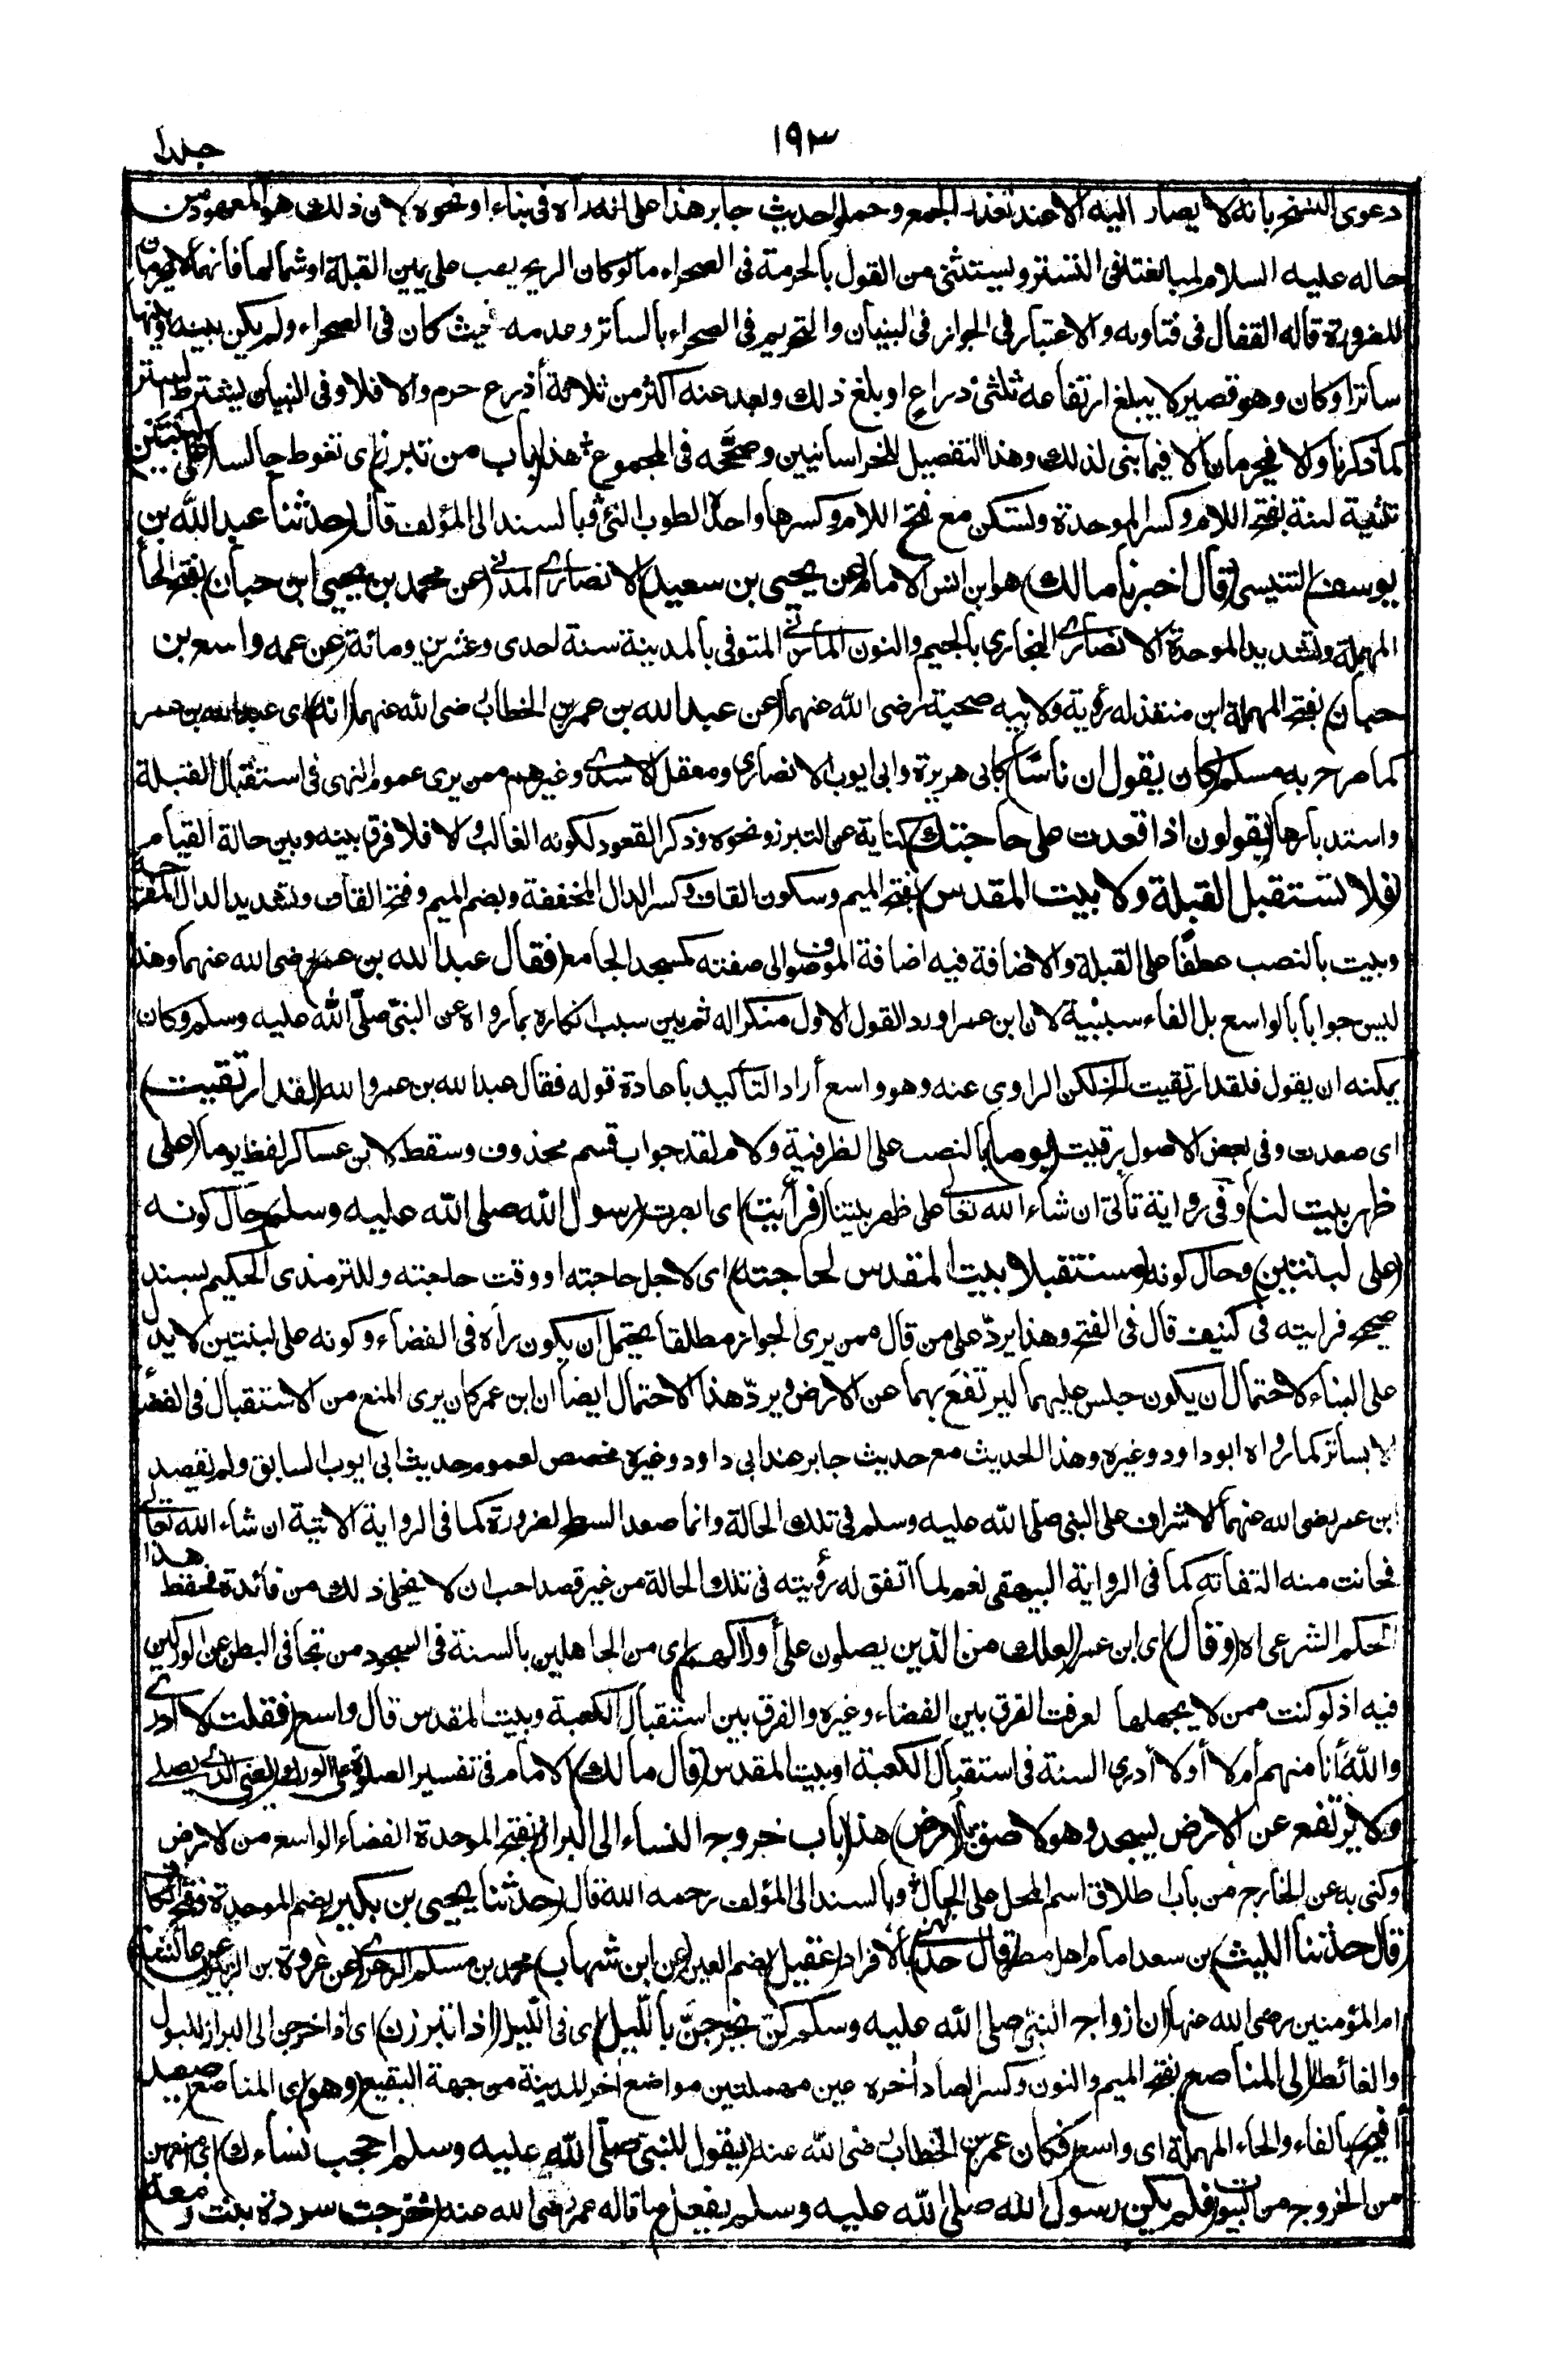 ١٩٣
جلد ١
دعوى النسخ بانه لا يصار اليه الا عند تعذر الجمع وحملوا حديث جابر هذا على انه رآه فى بناء او نحوه لان ذلك هو المعهود من
حاله عليه السلام لمبالغته فى التستر ويستثنى من القول بالحرمة فى الصحراء ما لو كان الريح يهب على يمين القبلة او شمالها فانهما لا يحرمان
للضرورة قاله القفال فى فتاويه والاعتبار فى الجواز فى البنيان والتحريم فى الصحراء بالساتر وعدمه فحيث كان فى الصحراء ولم يكن بينه وبينها
ساترا وكان وهو قصير لا يبلغ ارتفاعه ثلثى ذراع او بلغ ذلك وبعد عنه اكثر من ثلاثة أذرع حرم والا فلا وفى البنيان يشترط الستر
كما ذكرنا والا فيحرمان الا فيما بنى لذلك وهذا التفصيل للخراسانيين وصححه فى المجموع هذا (باب من تبرز) اى تغوط جالسا (على لبنتين)
تثنية لبنة بفتح اللام وكسر الموحدة وتسكن مع فتح اللام وكسرها واحد الطوب النئ وبالسند الى المؤلف قال (حدثنا عبد الله بن
يوسف) التنيسى (قال اخبرنا مالك) هو ابن انس الامام (عن يحيى بن سعيد) الانصارى المدنى (عن محمد بن يحيى ابن حبان) بفتح الحاء
المهملة وتشديد الموحدة الانصارى النجارى بالجيم والنون المازنى المتوفى بالمدينة سنة احدى وعشرين ومائة (عن عمه واسع بن
حبان) بفتح المهملة ابن منقذ له رؤية ولابيه صحبة رضى الله عنهما (عن عبد الله بن عمر بن الخطاب رضى الله عنهما (انه) اى عبد الله بن عمر
كما صرح به مسلم (كان يقول ان ناسا) كابى هريرة وابى ايوب الانصارى ومعقل الاسدى وغيرهم ممن يرى عموم النهى فى استقبال القبلة
واستدبارها (يقولون اذا قعدت على حاجتك) كناية عن التبرز ونحوه وذكر القعود لكونه الغالب والا فلا فرق بينه وبين حالة القيام
(فلا تستقبل القبلة ولا بيت المقدس) بفتح الميم وسكون القاف وكسر الدال المخففة وبضم الميم وفتح القاف وتشديد الدال المفتوحة
وبيت بالنصب عطفا على القبلة والاضافة فيه اضافة الموصوف الى صفته كمسجد الجامع (فقال عبد الله بن عمر) رضى الله عنهما وهذا
ليس جوابا بالواسع بل الفاء سببية لان ابن عمر اورد القول الاول منكرا له ثم بين سبب انكاره بما رواه عن النبى صلى الله عليه وسلم وكان
يمكنه ان يقول فلقد ارتقيت الخ لكن الراوى عنه وهو واسع أراد التأكيد باعادة قوله فقال عبد الله بن عمر والله (لقد ارتقيت)
اى صعدت وفى بعض الاصول رقيت (يوما) بالنصب على الظرفية ولام لقد جواب قسم محذوف وسقط لابن عساكر لفظ يوما (على
ظهر بيت لنا) وفى رواية تأتى ان شاء الله تعالى على ظهر بيتنا (فرأيت) اى ابصرت (رسول الله صلى الله عليه وسلم) حال كونه
(على لبنتين) وحال كونه (مستقبلا بيت المقدس لحاجته) اى لاجل حاجته او وقت حاجته وللترمذى الحكيم بسند
صحيح فرايته فى كنيف قال فى الفتح وهذا يردّ على من قال ممن يرى الجواز مطلقا يحتمل ان يكون رآه فى الفضاء وكونه على لبنتين لا يدل
على البناء لاحتمال ان يكون جلس عليهما ليرتفع بهما عن الارض ويردّ هذا الاحتمال ايضا ان ابن عمر كان يرى المنع من الاستقبال فى الفضاء
الا بساتر كما رواه ابو داود وغيره وهذا الحديث مع حديث جابر عند ابى داود وغيره مخصص لعموم حديث ابى ايوب السابق ولم يقصد
ابن عمر رضى الله عنهما الاشراف على النبى صلى الله عليه وسلم فى تلك الحالة وانما صعد السطح لضرورة كما فى الرواية الاتية ان شاء الله تعالى
فحانت منه التفاتة كما فى الرواية البيهقى نعم لما اتفق له رؤيته فى تلك الحالة من غير قصد احب ان لا يخلى ذلك من فائدة فحفظ هذا
الحكم الشرعى اه (وقال) اى ابن عمر (لعلك من الذين يصلون على أوراكهم) اى من الجاهلين بالسنة فى السجود من تجافى البطن عن الوركين
فيه اذ لو كنت ممن لا يجهلها لعرفت الفرق بين الفضاء وغيره والفرق بين استقبال الكعبة وبيت المقدس قال واسع (فقلت لا ادرى
والله) أنا منهم أم لا أو لا أدرى السنة فى استقبال الكعبة او بيت المقدس (قال مالك) الامام فى تفسير الصلوة على الورك (يعنى الذى يصلى
ولا يرتفع عن الارض يسجد وهو لاصق بالارض) هذا (باب خروج النساء الى البراز) بفتح الموحدة الفضاء الواسع من الارض
وكنى به عن الخارج من باب اطلاق اسم المحل على الحال وبالسند الى المؤلف رحمه الله قال (حدثنا يحيى بن بكير) بضم الموحدة وفتح الكاف
(قال حدثنا الليث) بن سعد امام اهل مصر (قال حدثنى) بالافراد (عقيل) بضم العين (عن ابن شهاب) محمد بن مسلم الزهرى (عن عروة) بن الزبير (عن عائشة)
ام المؤمنين رضى الله عنها (ان ازواج النبى صلى الله عليه وسلم كنّ يخرجنّ بالليل) اى فى الليل (اذا تبرزن) اى اذا خرجن الى البراز للبول
والغائط (الى المناصع) بفتح الميم والنون وكسر الصاد أخره عين مهملتين مواضع أخر المدينة من جهة البقيع (وهو) اى المناصع (صعيد
أفيح) بالفاء والحاء المهملة اى واسع (فكان عمر) بن الخطاب رضى الله عنه (يقول للنبى صلى الله عليه وسلم احجب نساءك) اى امنعهن
من الخروج من البيوت (فلم يكن رسول الله صلى الله عليه وسلم يفعل) ما قاله عمر رضى الله عنه (فخرجت سودة بنت زمعة)